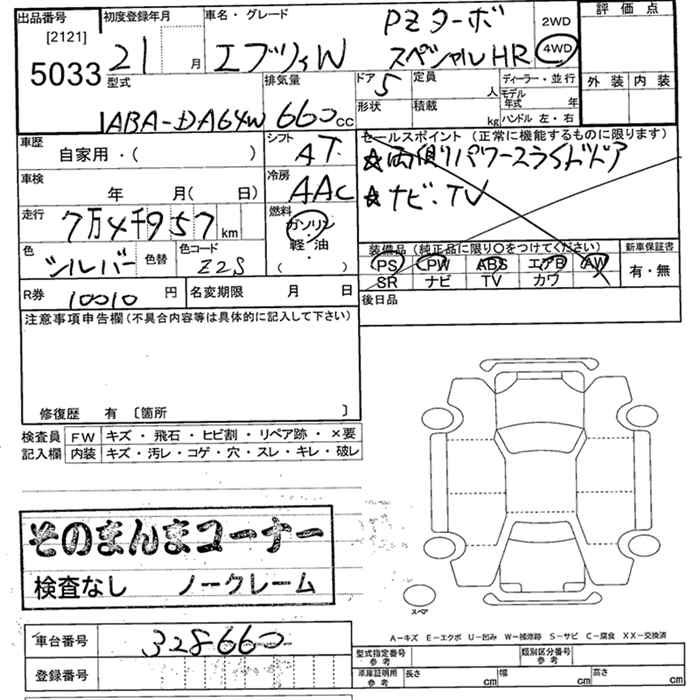 出品番号 [2121] 5033
初度登録年月 21 月
車名・グレード エブリィW PZターボ スペシャルHR
2WD
4WD
評価点
外装 内装
型式 ABA-DA64W
排気量 660 CC
ドア 5
形状
定員 人
積載 kg
ディーラー・並行
モデル年式 年
ハンドル 左・右
車歴 自家用・( )
シフト AT
車検 年 月( 日)
冷房 AAC
走行 7万4千957 km
燃料 ガソリン・軽・油 ( )
色 シルバー 色替
色コード Z2S
R券 10010 円
名変期限 月 日
セールスポイント (正常に機能するものに限ります)
☆両側パワースライドドア
☆ナビ・TV
装備品(純正品に限り○をつけてください)
新車保証書
PS PW ABS エアB AW
SR ナビ TV カワ
有・無
後日品
注意事項申告欄(不具合内容等は具体的に記入して下さい)
修復歴 有 〔箇所 〕
検査員 FW キズ・飛石・ヒビ割・リペア跡・×要
記入欄 内装 キズ・汚レ・コゲ・穴・スレ・キレ・破レ
そのまんまコーナー
検査なし ノークレーム
スペア
A-キズ E-エクボ U-凹み W-補修跡 S-サビ C-腐食 XX-交換済
車台番号 328660
登録番号
型式指定番号 参考
類別区分番号 参考
車庫証明用 参考 長さ cm 幅 cm 高さ cm